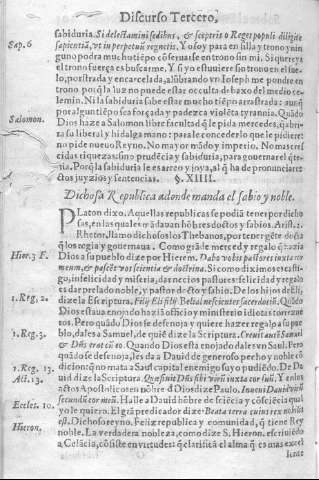 Discurso Tercero,
sabiduria. Si delectamini sedibus, & sceptris o Reges populi diligite
Sap. 6
sapientiã, vt in perpetuũ regnetis. Y o soy para en silla y trono y nin
guno podra mucho tiẽpo cõseruarse en trono sin mi. Si quereys
el trono fuerça es buscarme. Y si yo estuuiere sin trono en el sue-
lo, postrada y encarcelada, alũbrando vn Ioseph me pondre en
trono porq̃ la luz no puede estar occulta debaxo del medio ce-
lemin. Ni la sabiduria sabe estar mucho tiẽpo arrastrada: aunq̃
por algun tiẽpo sea forçada y padezca violẽta tyrania. Quãdo
Salomon.
Dios haze a Salomon libre facultad q̃ le pida mercedes, q̃ abri-
ra su liberal y hidalga mano: para le conceder lo que le pidiere:
no pide nueuo Reyno. No mayor mãdo y imperio. No mas cre
cidas riquezas: sino prudẽcia y sabiduria, para gouernar el q̃ te-
nia. Porq̃ la sabiduria le es arreo y joya, al q̃ ha de pronunciar re
ctos juyzios y sentencias. §. XIIII.
Dichosa Republica adonde manda el sabio y noble.
PLaton dixo. Aquellas republicas se podiã tener por dicho
sas, en las quales mãdauan hõbres doctos y sabios. Arist. 2.
Rheto. llamo dichosos los Thebanos, por tener gẽte docta
q̃ los regia y gouernaua. Como grãde merced y regalo q̃ hazia
Hier. 3 F.
Dios a su pueblo dize por Hierem. Dabo vobis pastores iuxta cor
meum, & pascẽt vos scientia & doctrina. Si como dixirnos es casti-
go, infelicidad y miseria, dar necios pastores: felicidad y regalo
es dar prelado noble, y pastor docto y sabio. De los hijos de Eli,
1. Reg. 2.
dize la Escriptura. Filij Eli filij Belial nescientes sacerdotiũ. Quãdo
Dios estaua enojado hazia officio y ministerio idiotos torrezne
ros. Pero quãdo Dios se desenoja y quiere hazer regalo a su pue
1. Reg. 3.
blo, dales a Samuel, de quiẽ dize la Script. Creuit autẽ Samuel
& Dñs erat cũ eo. Quando Dios esta enojado dales vn Saul. Pero
quãdo se desenoja, les da a Dauid de generoso pecho y noble cõ
1. Reg. 13.
dicion: q̃ no mata a Saul capital enemigo suyo pudiẽdo. De Da
Act. 13.
uid dize la Scriptura. Quæsiuit Dñs sibi virũ iuxta cor suũ. Y en los
actos Apostolicos en nõbre d̃ Dios dize Paulo. Inueni Dauid virũ
secundũ cor meũ. Halle a Dauid hõbre de sciẽcia y cõsciẽcia qual
Eccles. 10.
yo le quiero. El grã predicador dize: Beata terra cuius rex nobilis
est. Dichoso reyno, Felix republica y comunidad, q̃ tiene Rey
Hieron.
noble. La verdadera nobleza, como dize S. Hieron. escriuiẽdo
a Celãcia, cõsiste en virtudes: q̃ clarifica el alma q̃ es mas excel
lente